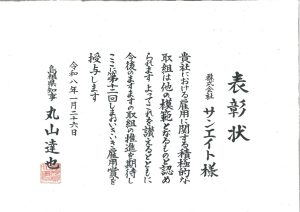 表彰状
株式会社 サンエイト様
貴社における雇用に関する積極的な
取組は他の模範となるものと認め
られます よってこれを讃えるとともに
今後のますますの取組の推進を期待し
ここに第十二回しまねいきいき雇用賞を
授与します
令和八年一月二十六日
島根県知事 丸山達也